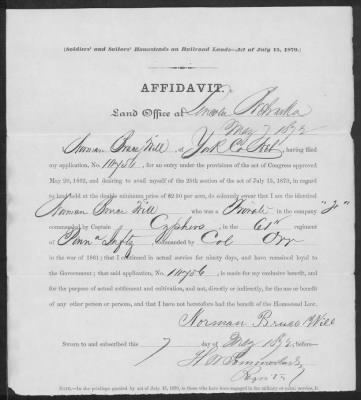 (Soldiers' and Sailors' Homestead on Railroad Lands—Act of July 15, 1870.)
AFFIDAVIT.
Land Office at Lincoln Nebraska
May 7 1872
I, Norman Bruce Will, of York Co Neb, having filed
my application, No. 11456, for an entry under the provisions of the act of Congress approved
May 20, 1862, and desiring to avail myself of the 25th section of the act of July 15, 1870, in
regard to land held at the double minimum price of $2.50 per acre, do solemnly swear that I am the identical
Norman Bruce Will who was a Private in the company "J"
commanded by Captain Cyphers, in the 61st regiment
of Penn'a Infty, commanded by Col Orr
in the war of 1861; that I continued in actual service for ninety days, and have remained loyal to
the Government; that said application, No. 11456, is made for my exclusive benefit, and
for the purpose of actual settlement and cultivation, and not, directly or indirectly, for the use or benefit
of any other person or persons, and that I have not heretofore had the benefit of the Homestead Law.
Norman Bruce Will
Sworn to and subscribed this 7 day of May 1872, before
Register
NOTE.—In the privilege granted by act of July 15, 1870, is to those who have been engaged in the military or naval service, it